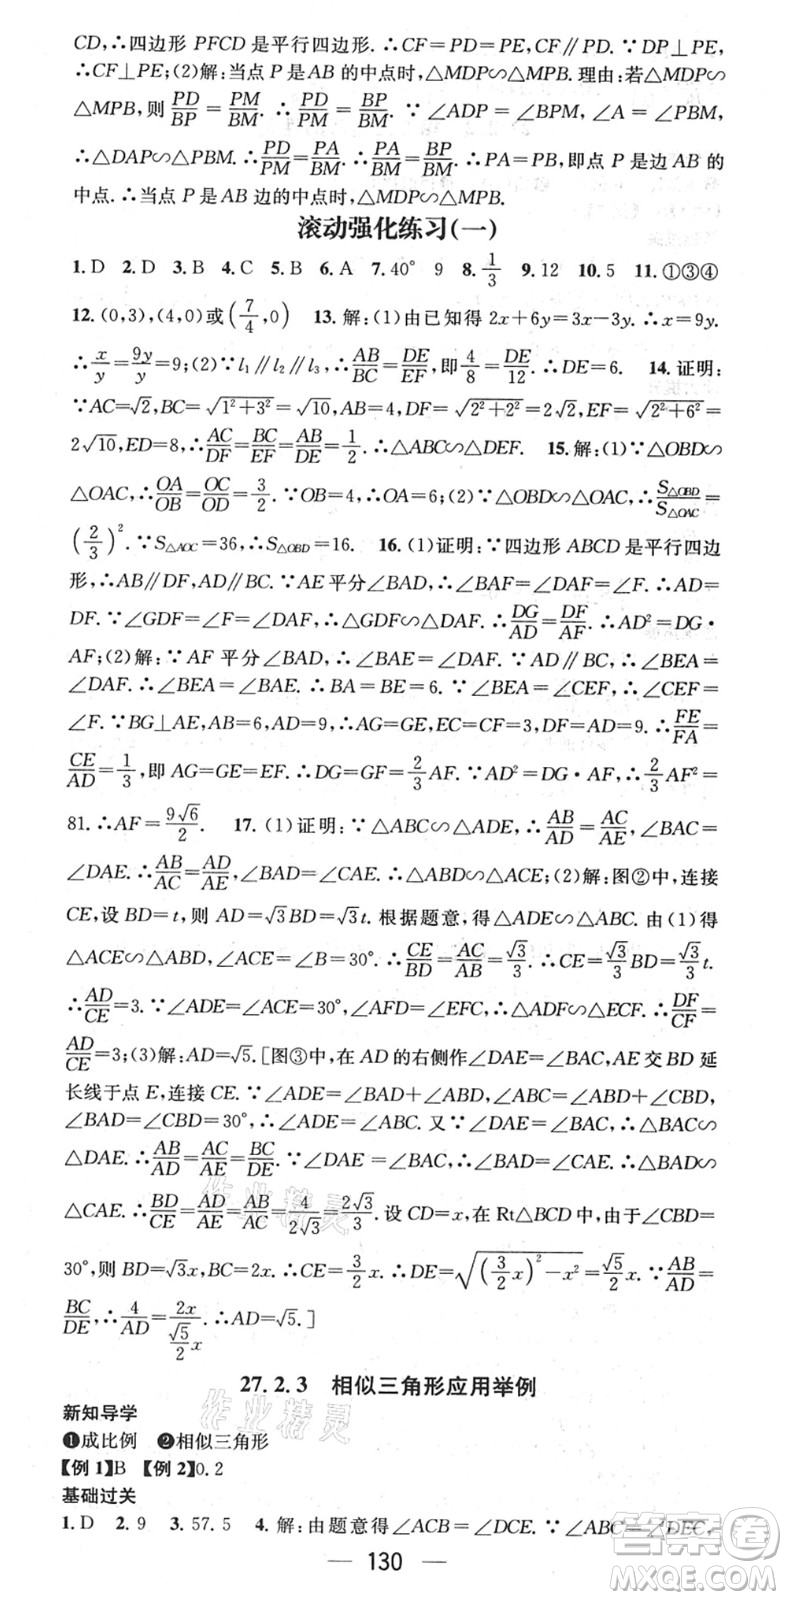 CD,∴四边形 PFCD 是平行四边形.∴CF=PD=PE,CF∥PD.∵DP⊥PE,
∴CF⊥PE;(2)解:当点 P 是AB 的中点时,△MDP∽△MPB.理由:若△MDP∽
△MPB,则 PD/BP=PM/BM.∴PD/PM=BP/BM.∵∠ADP=∠BPM,∠A=∠PBM,
∴△DAP∽△PBM.∴PD/PM=PA/BM.∴PA/BM=BP/BM.∴PA=PB,即点 P 是边 AB 的
中点.∴当点 P 是 AB 边的中点时,△MDP∽△MPB.
滚动强化练习(一)
1. D 2. D 3. B 4. C 5. B 6. A 7. 40° 9 8. 1/3 9. 12 10. 5 11. ①③④
12. (0,3),(4,0)或(7/4,0) 13. 解:(1)由已知得 2x+6y=3x-3y.∴x=9y.
∴x/y=9y/y=9;(2)∵l₁∥l₂∥l₃.∴AB/BC=DE/EF,即4/8=DE/12.∴DE=6. 14. 证明:
∵AC=√2,BC=√(1²+3²)=√10,AB=4,DF=√(2²+2²)=2√2,EF=√(2²+6²)=
2√10,ED=8,∴AC/DF=BC/EF=AB/DE=1/2.∴△ABC∽△DEF. 15. 解:(1)∵△OBD∽
△OAC,∴OA/OB=OC/OD=3/2.∵OB=4,∴OA=6;(2)∵△OBD∽△OAC,∴S△OBD/S△OAC=
(2/3)².∵S△AOC=36,∴S△OBD=16. 16. (1)证明:∵四边形 ABCD 是平行四边
形,∴AB∥DF,AD∥BC.∵AE 平分∠BAD,∴∠DAF=∠F.∴AD=
DF.∵∠GDF=∠F=∠DAF,∴△GDF∽△DAF.∴DG/AD=DF/AF.∴AD²=DG·
AF;(2)解:∵AF 平分∠BAD,∴∠BAE=∠DAF.∵AD∥BC,∴∠BEA=
∠DAF.∴∠BEA=∠BAE.∴BA=BE=6.∵∠BEA=∠CEF,∴∠CEF=
∠F.∵BG⊥AE,AB=6,AD=9,∴AG=GE,EC=CF=3,DF=9.∴FE/FA=
CE/AD=1/3,即 AG=GE=EF.∴DG=GF=2/3AF.∵AD²=DG·AF=2/3AF²=
81.∴AF=9√6/2. 17. (1)证明:∵△ABC∽△ADE,∴AB/AD=AC/AE,∠BAC=
∠DAE.∴AB/AC=AD/AE.∴△ABD∽△ACE;(2)解:图②中,连接
CE,设 BD=t,则 AD=√3BD=√3t.根据题意,得△ADE∽△ABC.由(1)得
△ACE∽△ABD,∠ACE=∠B=30°.∴CE/BD=AC/AB=√3/3.∴CE=√3/3BD=√3/3t.
∴AD/CE=3.∵∠ADE=∠ACE=30°,∠AFD=∠EFC,∴△ADF∽△ECF.∴DF/CF=
AD/CE=3;(3)解:AD=√5.[图③中,在 AD 的右侧作∠DAE=∠BAC,AE 交 BD 延
长线于点 E,连接 CE.∵∠ADE=∠BAD+∠ABD,∠ABC=∠ABD+∠CBD,
∠BAD=∠CBD=30°,∴∠ADE=∠ABC.又∵∠DAE=∠BAC,∴△BAC∽
△DAE.∴AB/AD=AC/AE=BC/DE.∵∠DAE=∠BAC,∴∠BAD=∠CAE.∴△BAD∽
△CAE.∴BD/CE=AD/AE=AB/AC=4/2√3=2√3/3.设 CD=x,在 Rt△BCD 中,由于∠CBD=
30°,则 BD=√3x,BC=2x.∴CE=3/2x.∴DE=√((3/2x)²-x²)=√5/2x.∵AB/AD=
BC/DE,∴4/AD=2x/(√5/2x).∴AD=√5.]
27.2.3 相似三角形应用举例
新知导学
❶成比例 ❷相似三角形
【例 1】B 【例 2】0.2
基础过关
1. D 2. 9 3. 57.5 4. 解:由题意得∠ACB=∠DCE.∵∠ABC=∠DEC,
130
作业精灵
作业精灵
答案圈
MXQE.COM